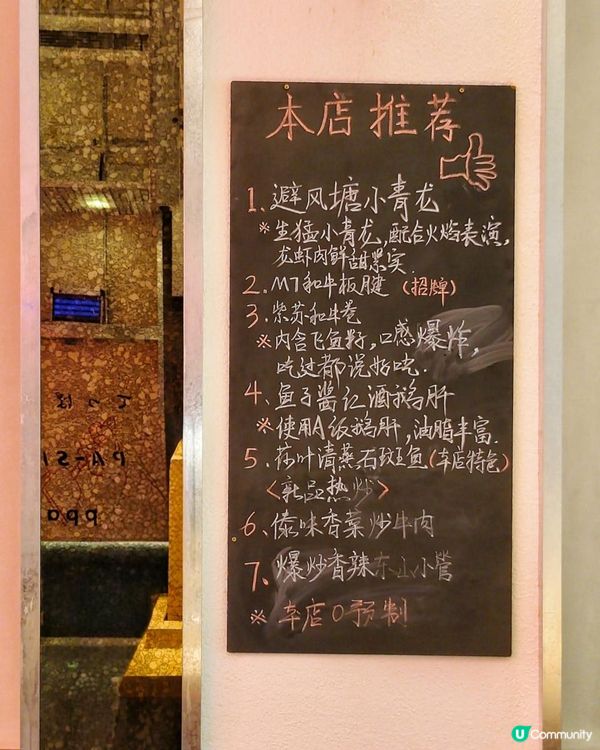 本店推荐
1、避风塘小青龙
※生猛小青龙,配合火焰表演,
龙虾肉鲜甜果实
2、M7和牛板腱(招牌)
3、紫苏和牛卷
※内含飞鱼籽,口感爆炸,
吃过都说好吃.
4、鱼子酱红酒鹅肝
※使用A级鹅肝,油脂丰富.
5、荷叶清蒸石斑鱼(本店特色)
<新品热炒>
6、傣味香菜炒牛肉
7、爆炒香辣东山小管
※本店0预制
U Community